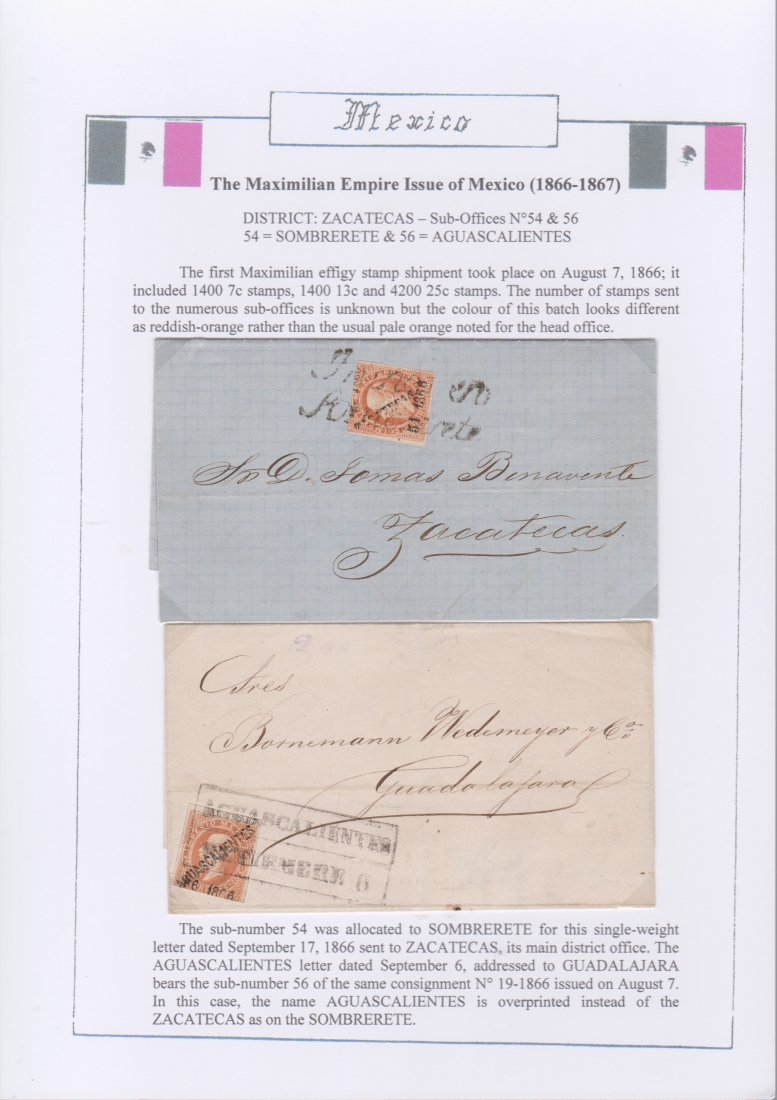 Mexico
The Maximilian Empire Issue of Mexico (1866-1867)
DISTRICT: ZACATECAS – Sub-Offices N°54 & 56
54 = SOMBRERETE & 56 = AGUASCALIENTES
The first Maximilian effigy stamp shipment took place on August 7, 1866; it
included 1400 7c stamps, 1400 13c and 4200 25c stamps. The number of stamps sent
to the numerous sub-offices is unknown but the colour of this batch looks different
as reddish-orange rather than the usual pale orange noted for the head office.
en
1866
Sr D. Tomas Benavente
Zacatecas.
Sres
Bornemann Wedemeyer y Ca
Guadalajara
AGUASCALIENTES
6
AGUASCALIENTES
1866
The sub-number 54 was allocated to SOMBRERETE for this single-weight
letter dated September 17, 1866 sent to ZACATECAS, its main district office. The
AGUASCALIENTES letter dated September 6, addressed to GUADALAJARA
bears the sub-number 56 of the same consignment N° 19-1866 issued on August 7.
In this case, the name AGUASCALIENTES is overprinted instead of the
ZACATECAS as on the SOMBRERETE.